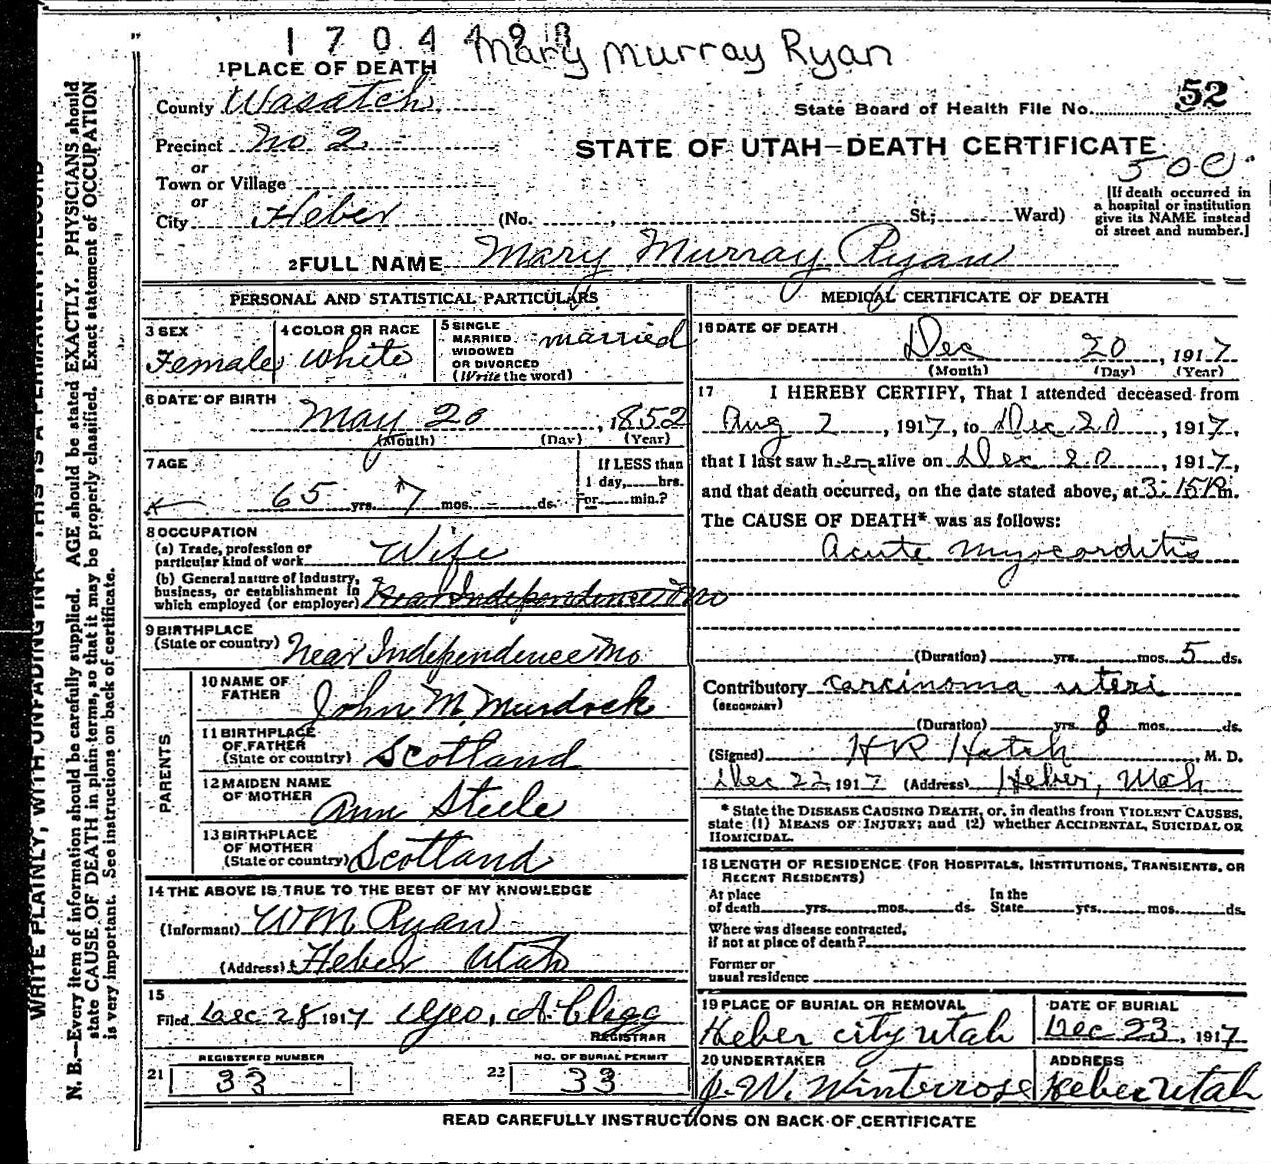 1704498
Mary Murray Ryan
1 PLACE OF DEATH
County Wasatch
State Board of Health File No. 52
Precinct No 2
STATE OF UTAH—DEATH CERTIFICATE
or
Town or Village
500
or
City Heber (No. , St.; Ward)
[If death occurred in
a hospital or institution
give its NAME instead
of street and number.]
2 FULL NAME Mary Murray Ryan
PERSONAL AND STATISTICAL PARTICULARS
3 SEX
Female
4 COLOR OR RACE
White
5 SINGLE
MARRIED
WIDOWED
OR DIVORCED
(Write the word)
married
6 DATE OF BIRTH
May 20, 1852
(Month) (Day) (Year)
7 AGE
65 yrs. 7 mos. ds.
If LESS than
1 day, hrs.
or min.?
8 OCCUPATION
(a) Trade, profession or
particular kind of work Wife
(b) General nature of industry,
business, or establishment in
which employed (or employer) Near Independence Mo
9 BIRTHPLACE
(State or country) Near Independence Mo
PARENTS
10 NAME OF
FATHER John M. Murdock
11 BIRTHPLACE
OF FATHER
(State or country) Scotland
12 MAIDEN NAME
OF MOTHER Ann Steele
13 BIRTHPLACE
OF MOTHER
(State or country) Scotland
14 THE ABOVE IS TRUE TO THE BEST OF MY KNOWLEDGE
(Informant) WM Ryan
(Address) Heber Utah
15
Filed Dec 28 1917 Geo. A. Clegg
REGISTRAR
REGISTERED NUMBER
21 33
NO. OF BURIAL PERMIT
22 33
MEDICAL CERTIFICATE OF DEATH
16 DATE OF DEATH
Dec 20, 1917
(Month) (Day) (Year)
17 I HEREBY CERTIFY, That I attended deceased from
Aug 2, 1917, to Dec 20, 1917,
that I last saw her alive on Dec 20, 1917,
and that death occurred, on the date stated above, at 3:15 P m.
The CAUSE OF DEATH* was as follows:
Acute Myocarditis
(Duration) yrs. mos. 5 ds.
Contributory Carcinoma uteri
(SECONDARY)
(Duration) yrs. 8 mos. ds.
(Signed) H R Hatch, M. D.
Dec 22 1917 (Address) Heber, Utah
* State the DISEASE CAUSING DEATH, or, in deaths from VIOLENT CAUSES,
state (1) MEANS OF INJURY; and (2) whether ACCIDENTAL, SUICIDAL OR
HOMICIDAL.
18 LENGTH OF RESIDENCE (FOR HOSPITALS, INSTITUTIONS, TRANSIENTS, OR
RECENT RESIDENTS)
At place
of death yrs. mos. ds.
In the
State yrs. mos. ds.
Where was disease contracted,
if not at place of death?
Former or
usual residence
19 PLACE OF BURIAL OR REMOVAL
Heber city Utah
DATE OF BURIAL
Dec 23, 1917
20 UNDERTAKER
J. W. Winterrose
ADDRESS
Heber Utah
READ CAREFULLY INSTRUCTIONS ON BACK OF CERTIFICATE
WRITE PLAINLY, WITH UNFADING INK—THIS IS A PERMANENT RECORD
N. B.—Every item of information should be carefully supplied. AGE should be stated EXACTLY. PHYSICIANS should
state CAUSE OF DEATH in plain terms, so that it may be properly classified. Exact statement of OCCUPATION
is very important. See instructions on back of certificate.